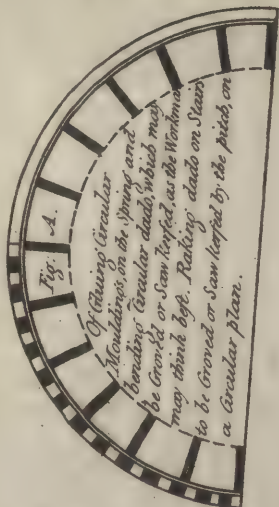 Fig. A.
Of Gluing Circular
Mouldings, on the Spring and
bending Circular dado, which may
be Groved or Saw kerfed, as the Workman
may think best. Raking dado on Stairs
to be Groved or Saw kerfed by the pitch, on
a Circular plan.